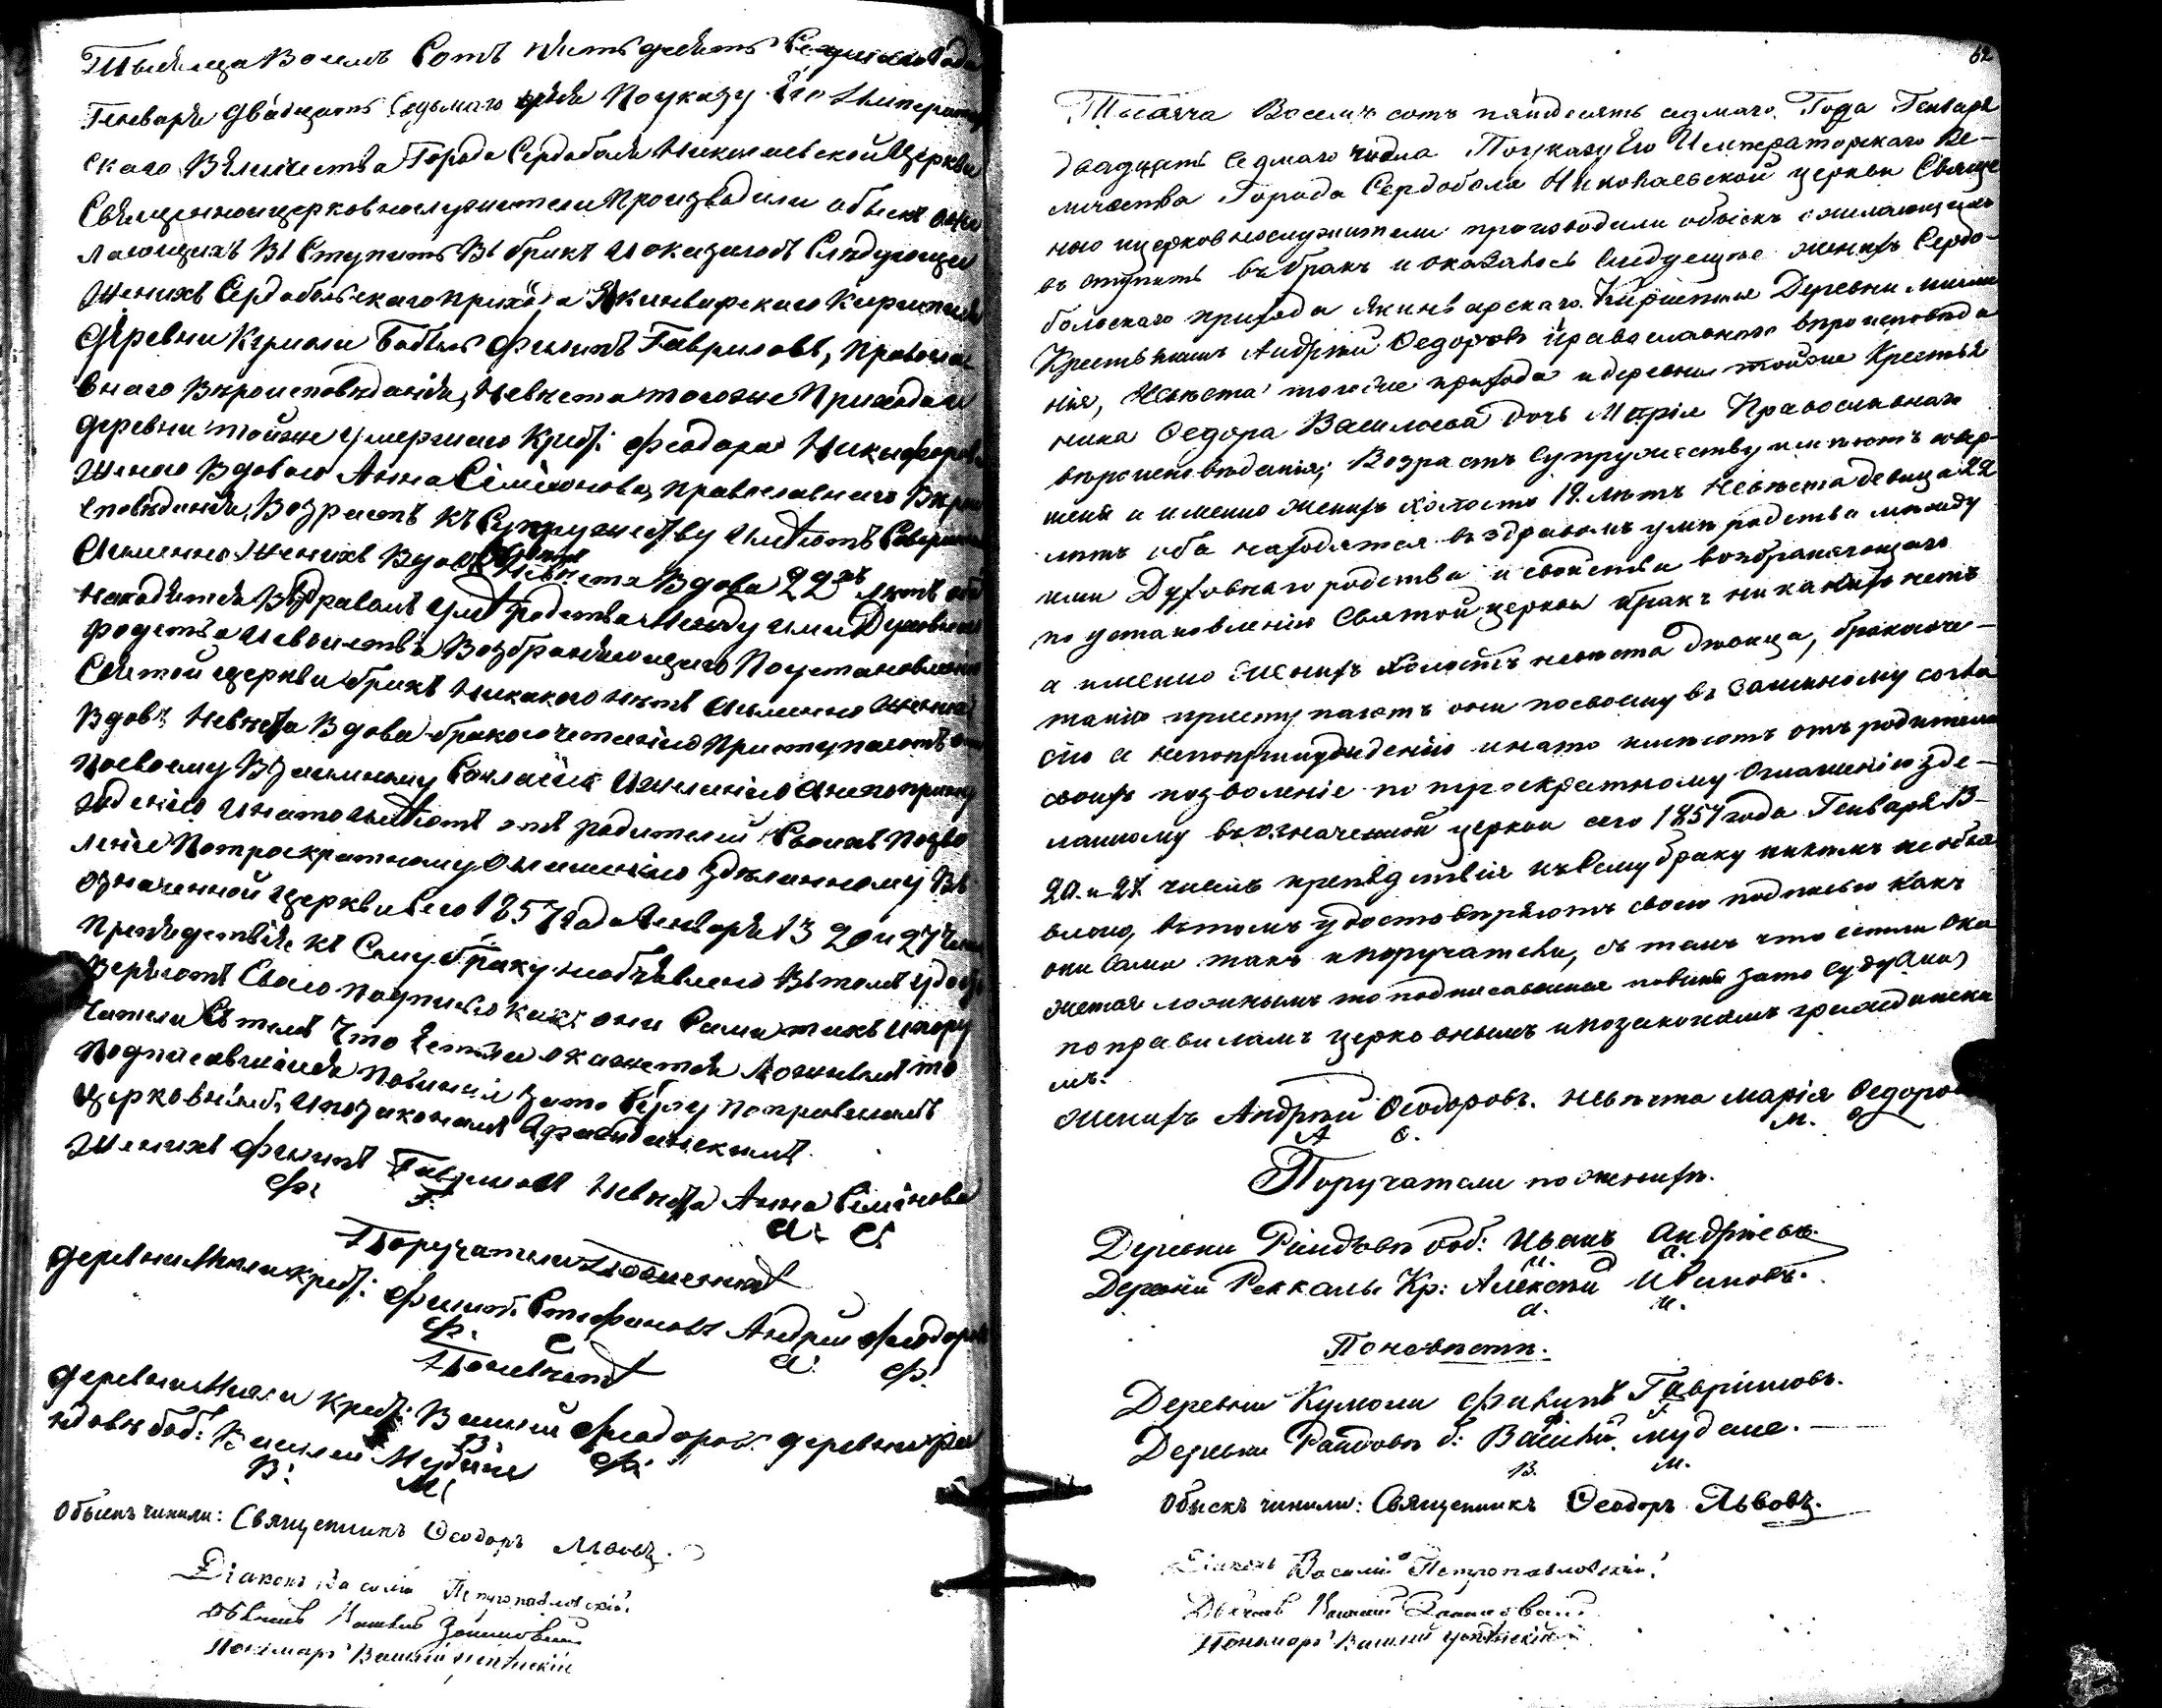 Тысяща Восемъ Сотъ пятьдесятъ Седмаго Года
Генваря двадцать Седьмаго дня По указу Его Император
скаго Величества Города Сердоболя Николаевской Церкви
Священноицерковнослужители Производили обыскъ о же
лающихъ Въ Ступить Въ бракъ И оказалось Следующее
Женихъ Сердобольскаго прихода Якимварскаго Кирхшпиля
Деревни Кумоли бобыль Филипъ Гавриловъ, Правосла
внаго Вероисповеданія, Невеста тогоже Прихода и
деревни тойже умершаго Крест: Феодора Никифорова
Жена Вдова Анна Симионова, православнаго Веро
споведанія, Возрастъ къ Супружеству Имеютъ Соверше
Аименно Женихъ Вдовъ Невеста Вдова 22хъ летъ оба
находятся Въ здравомъ уме родства Между ими Духовнаго
родства и свойства Возбраняющаго По установленію
Святой церкви бракъ Никакого нетъ Аименно Женихъ
Вдовъ Невеста Вдова бракосочетанію Приступаютъ они
По своему Взаимному Согласію И желанію А не по прину
жденію И на то имеютъ отъ родителей Своихъ Позво
леніе По троекратному оглашенію зделанному Въ
означенной Церкви Сего 1857 Года Генваря 13 20 и 27 Чи
Препядствія къ Сему браку необъявлено Въ томъ удосто
Веряютъ Своею подписью какъ они Сами такъ и пору
Чатели Съ темъ Что Естьли окажется Ложнымъ то
Подписавшіися повинны зато Суду по правиламъ
Церковнымъ, И по законамъ Гражданскимъ
Женихъ Филипъ Гавриловъ Невеста Анна Симіонова
Ф: Г: А: С:
Поручатели По женихе
деревни Мили крест: Филипъ Стефановъ Андрей Феодоров
Ф. С А: Ф:
По невесте
деревни Мили Крест: Василій Феодоровъ деревни Рей
ндовы боб: Василій Мудене
В: М:
Обыскъ чинили: Священникъ Феодоръ Львовъ.
Діаконъ Василій Петропавловскій.
Пономарь Василій
62
Тысяча Восемъ сотъ пятдесятъ седмаго Года Генваря
двадцать Седмаго числа По указу Его Императорскаго Ве-
личества Города Сердоболя Николаевской церкви Свяще
нно ицерковнослужители производили обыскъ о желающихъ
въ ступить въ бракъ и оказалось Следующее женихъ Сердо-
больскаго прихода Якимварскаго Кирхшпиля Деревни Мили
Крестьянинъ Андрей Федоровъ православнаго вероисповеда
нія, Невеста тогоже прихода и деревни тойже Крестья
нина Федора Васильева дочь Марія Православнаго
вероисповеданія; Возрастъ Супружеству имеютъ совер-
шени а именно женихъ холостъ 19. летъ Невеста девица 22
летъ оба находятся въ здравомъ уме родства между
ими Духовнаго родства и свойства возбраняющаго
по установленію Святой церкви бракъ никакаго нетъ
а именно женихъ холостъ невеста девица, бракосоче-
танію приступаютъ они по своему взаимному согла
сію а непопринужденію инато имеютъ отъ родителей
своихъ позволеніе по троекратному оглашенію зде-
ланному въ означенной церкви сего 1857 года Генваря 13-
20. и 27. числъ препядствія къ сему браку никемъ необъя
влено, въ томъ удостоверяютъ своею подписью какъ
они сами такъ и поручатели, съ темъ что естьли ока
жется ложнымъ то подписавшіися повинны зато суду
по правиламъ церковнымъ и по законамъ граждански
мъ.
Женихъ Андрей Феодоровъ. Невеста Марія Федоров
А Ѳ. М. Ѳ
Поручатели по женихе.
Деревни Риндовы боб: Иванъ Андреевъ.
И. А.
Деревни Реккалы Кр: Алексей Ивановъ.
А. И.
По невесте.
Деревни Кумоли Филипъ Гавриловъ.
Деревни Рандовы б: Василій Мудене.
В. М.
Обыскъ чинили: Священникъ Феодоръ Львовъ.
Діаконъ Василій Петропавловскій.
Пономарь Василій